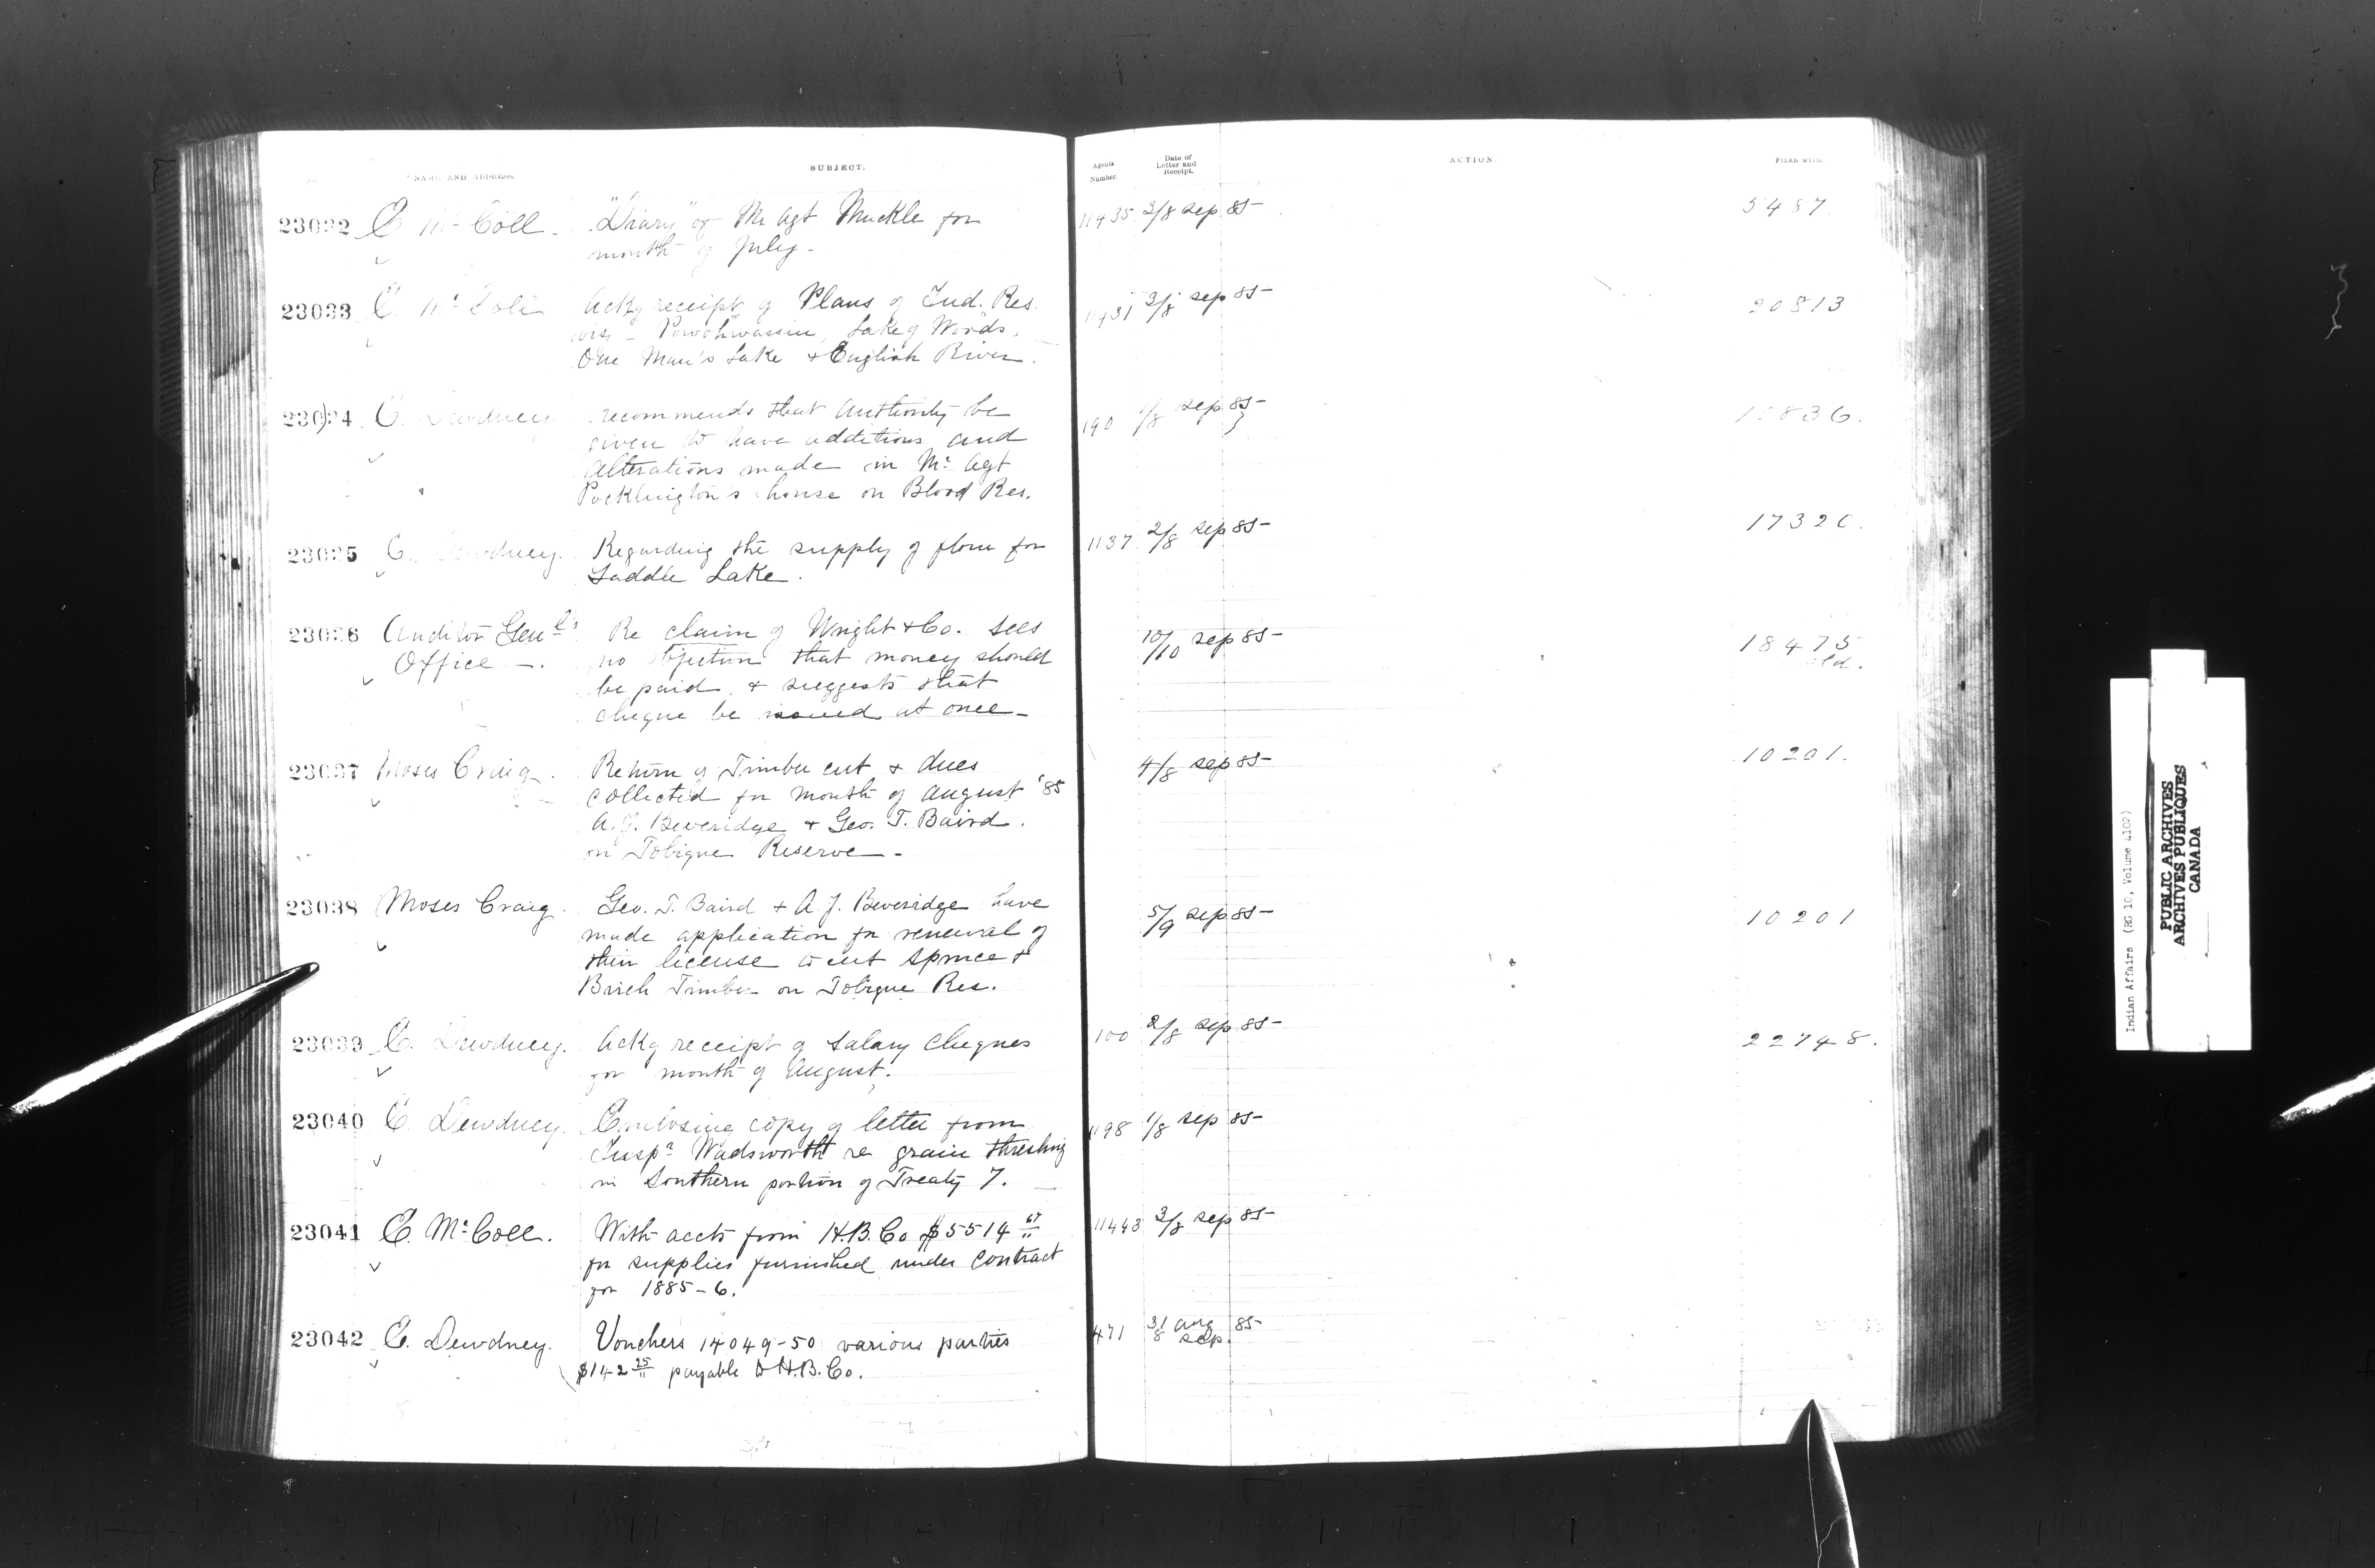 NAME AND ADDRESS.
SUBJECT.
23032 E. McColl. "Diary" of Mr Agt Muckle for
month of July-
23033 E. McColl Ackg receipt of Plans of Ind. Res.
viz - Powohwassin, Lake of Woods,
One Man's Lake & English River.
23034 E. Dewdney recommends that authority be
given to have additions and
alterations made in Mr. Agt
Pocklington's house on Blood Res.
23035 E. Dewdney. Regarding the supply of flour for
Saddle Lake.
23036 Auditor Genl's Re claim of Wright & Co. sees
Office -. no objection that money should
be paid, & suggests that
cheque be issued at once-
23037 Moses Craig. Return of Timber cut & dues
collected for month of August '85
A.J. Beveridge & Geo. T. Baird.
on Tobique Reserve-
23038 Moses Craig. Geo. T. Baird & A.J. Beveridge have
made application for renewal of
their license to cut Spruce &
Birch Timber on Tobique Res.
23039 E. Dewdney. Ackg receipt of Salary Cheques
for month of August.
23040 E. Dewdney. Enclosing copy of letter from
Inspr Wadsworth re grain threshing
in Southern portion of Treaty 7.
23041 E. McColl. With accts from H.B. Co $5514 67
for supplies furnished under contract
for 1885-6.
23042 E. Dewdney. Vouchers 14049-50 various parties
$142 25 payable to H.B. Co.
Agents
Number.
Date of
Letter and
Receipt.
ACTION.
FILED WITH.
11435 3/8 Sep 85- 5487
3/8 Sep 85- 20813
190 1/8 Sep 85-
1137 2/8 Sep 85-
10/10 Sep 85- 18475
4/8 Sep 85- 10201.
5/9 Sep 85- 10201
100 2/8 Sep 85- 22748.
1198 1/8 Sep 85-
11443 3/8 Sep 85-
471 31 Aug 85-
8 Sep.
Indian Affairs (RG 10, Volume
PUBLIC ARCHIVES
ARCHIVES PUBLIQUES
CANADA